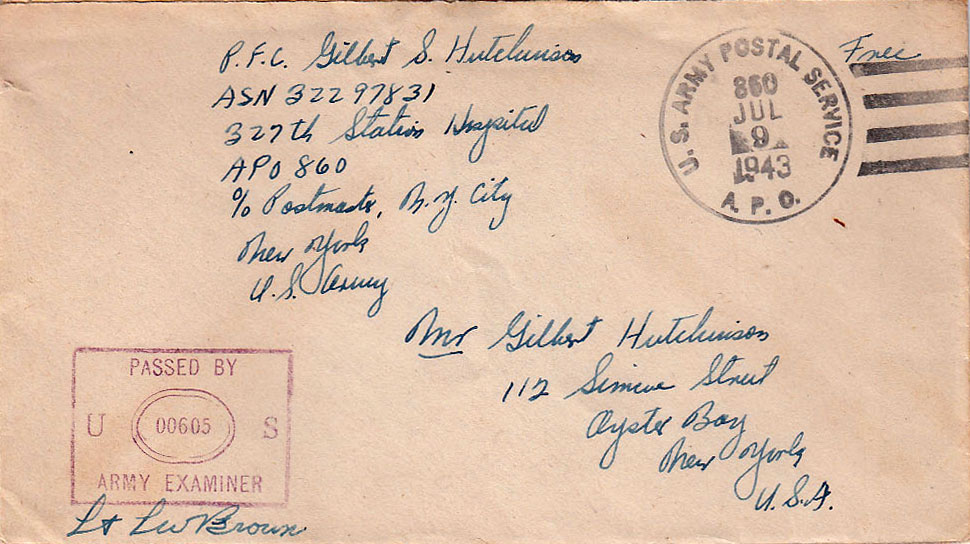 P.F.C. Gilbert S. Hutchinson
ASN 32297831
327th Station Hospital
APO 860
% Postmaster, N.Y. City
New York
U.S. Army
U.S. ARMY POSTAL SERVICE
860
JUL
9
1943
A.P.O.
Free
Mr Gilbert Hutchinson
112 Street
Oyster Bay
New York
U.S.A.
PASSED BY
U 00605 S
ARMY EXAMINER
Lt LW Brown